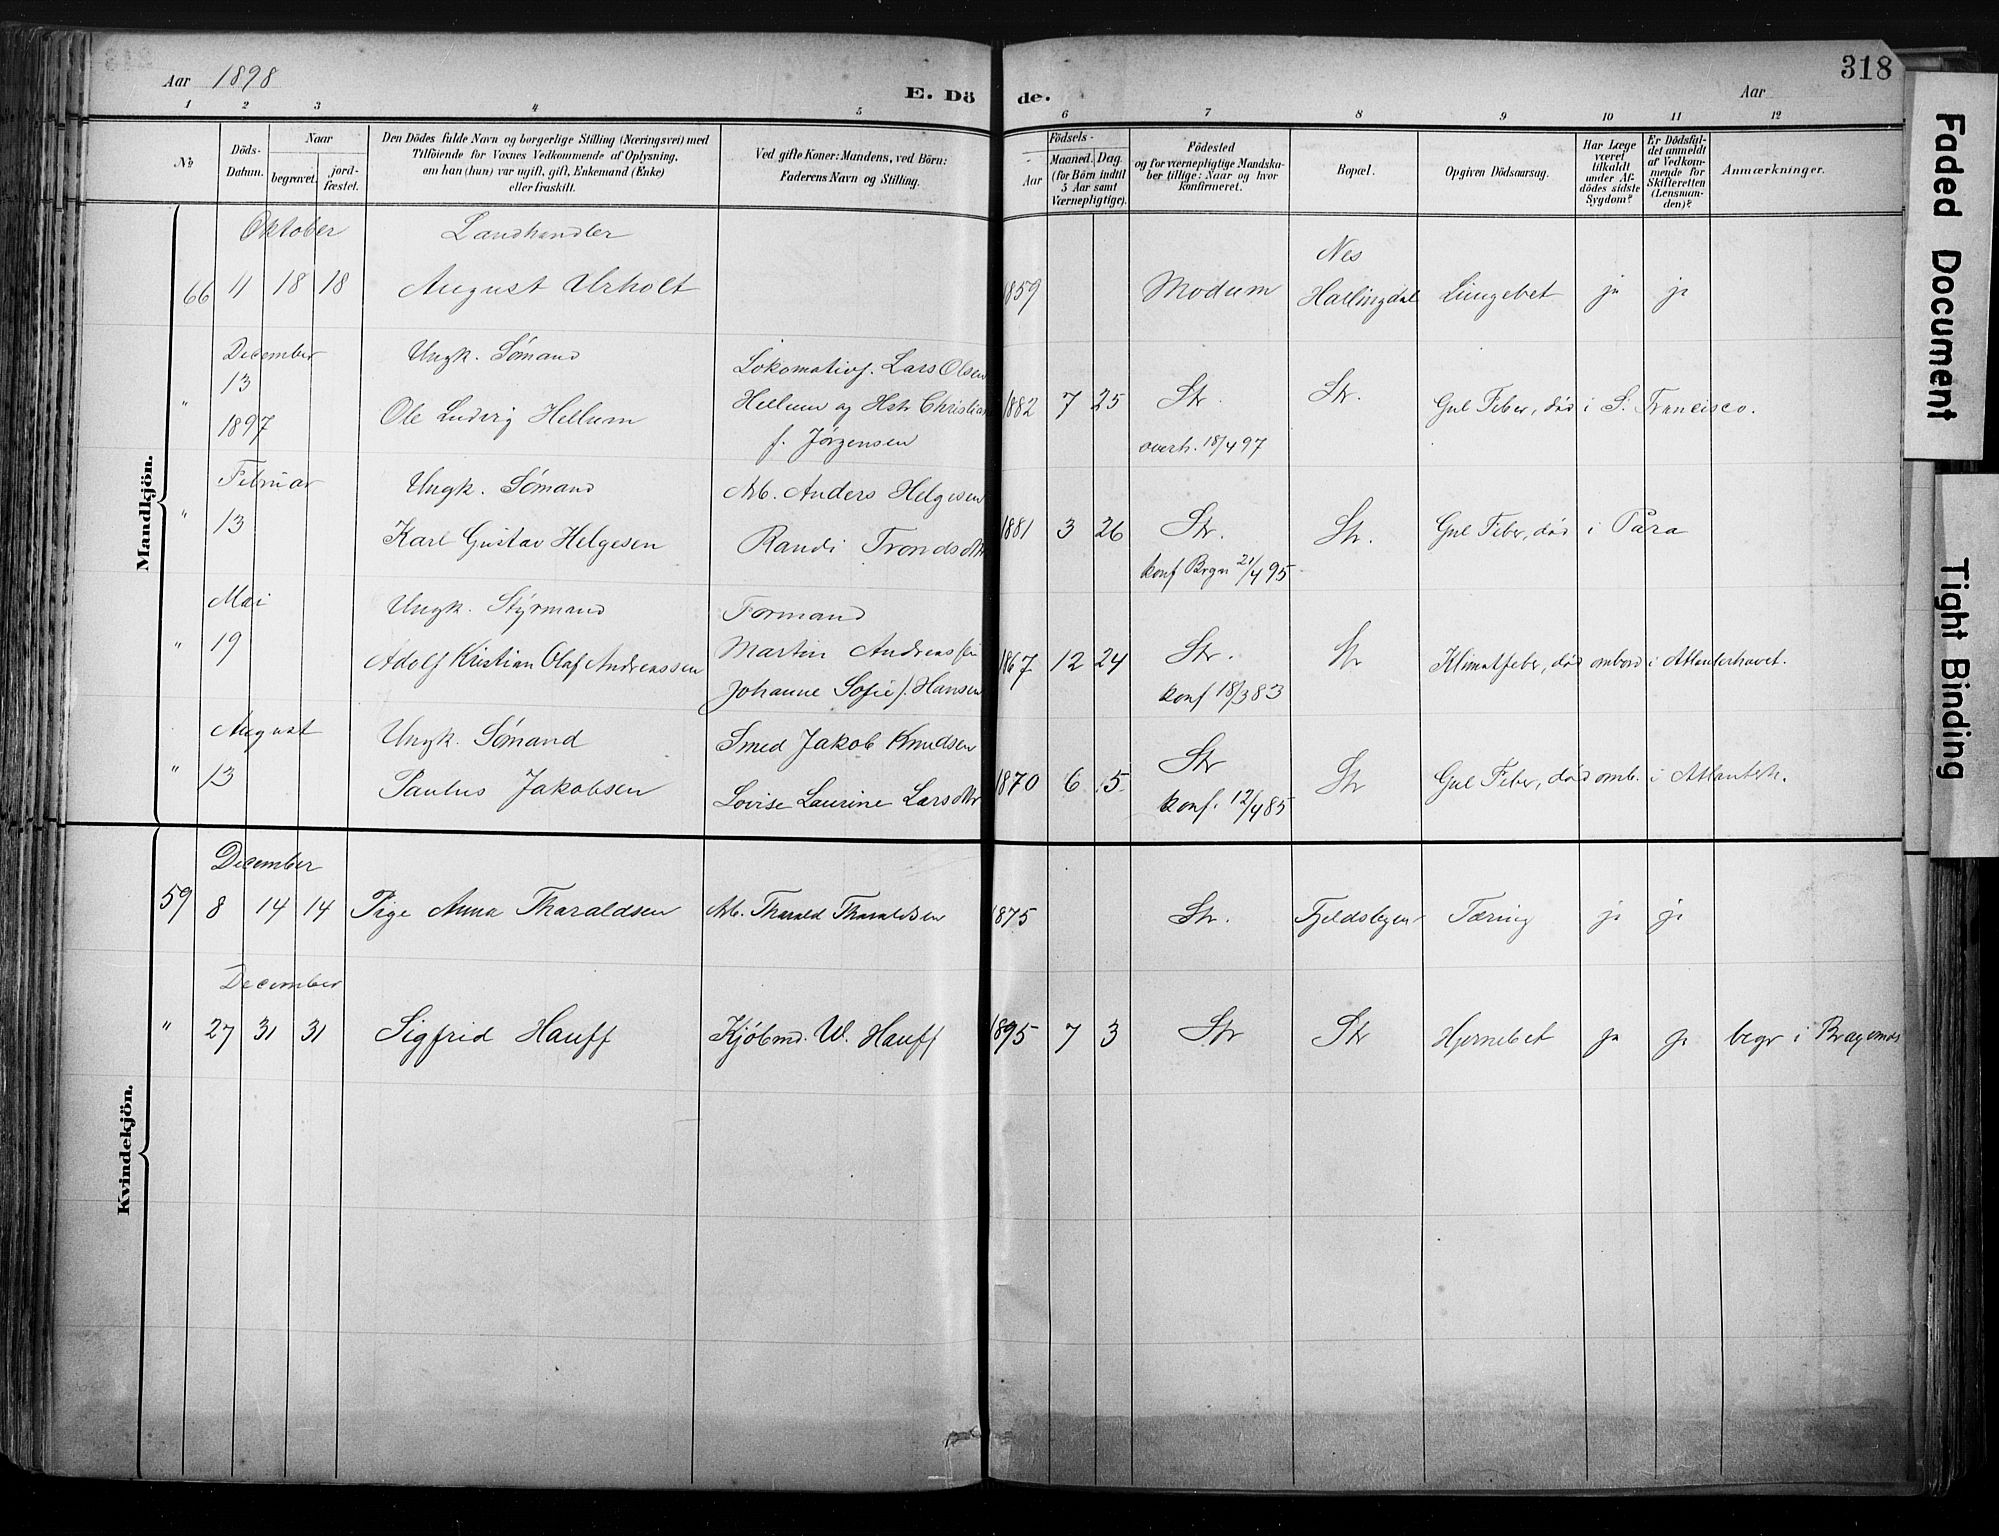 Aar 1898
E. Dö de.
Aar
318
1 2 3 4 5 6 7 8 9 10 11 12
No
Döds-
Datum.
Naar
begravet.
jord-
fæstet.
Den Dödes fulde Navn og borgerlige Stilling (Næringsvei) med
Tilföiende for Voxnes Vedkommende af Oplysning,
om han (hun) var ugift, gift, Enkemand (Enke)
eller fraskilt.
Ved gifte Koner: Mandens, ved Börn:
Faderens Navn og Stilling.
Födsels-
Aar
Maaned. Dag.
(for Börn indtil
5 Aar samt
Værnepligtige).
Födested
og for værnepligtige Mandska-
ber tillige: Naar og hvor
konfirmeret.
Bopæl.
Opgiven Dödsaarsag.
Har Læge
været
tilkaldt
under Af-
dödes sidste
Sygdom?
Er Dødsfal-
det anmeldt
af Vedkom-
mende for
Skifteretten
(Lensman-
den)?
Anmærkninger.
Mandkjön.
Oktober Landhandler Nes
66 11 18 18 August Urholt 1859 Modum Hallingdal Lungebet ja ja
December Ungk. Sømand Lokomativf. Lars Olsen
" 13 Ole Ludvig Hellum Hellum og Hstr Christian 1882 7 25 Str. Str. Gul Feber, død i S. Francisco.
1897 f. Jørgensen overh. 18/4 97
Februar Ungk. Sømand Arb. Anders Helgesen
" 13 Karl Gustav Helgesen Randi Trondsdtr 1881 3 26 Str. Str. Gul Feber, død i Para
konf Brgn 21/4 95
Mai Ungk. Styrmand Formand
" 19 Adolf Kristian Olaf Andreassen Martin Andreassen 1867 12 24 Str. Str Klimatfeber, død ombord i Atlanterhavet.
Johanne Sofie f. Hansen konf 18/3 83
August Ungk. Sømand Smed Jakob Knudsen
" 13 Paulus Jakobsen Lovise Laurine Larsdtr 1870 6 5 Str Str Gul Feber, død omb. i Atlanterh.
konf. 12/4 85
Kvindekjön.
December
59 8 14 14 Pige Anna Tharaldsen Arb. Tharald Tharaldsen 1875 Str. Fjeldsbyen Tæring ja ja
December
" 27 31 31 Sigfrid Hauff Kjøbmd. W. Hauff 1895 7 3 Str Str Hjernebet ja ja begr i Bragernes
Faded Document
Tight Binding